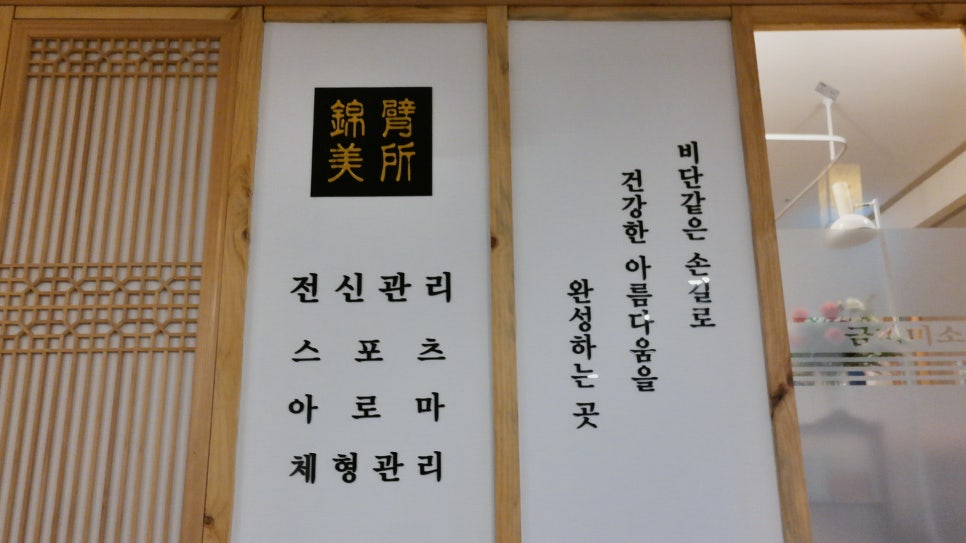 錦臂
美所
전신관리
스포츠
아로마
체형관리
비단같은 손길로
건강한 아름다움을
완성하는 곳